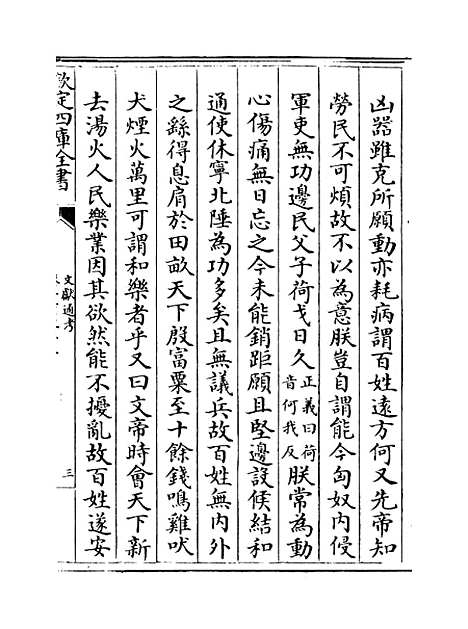 凶器雖克所願動亦耗病謂百姓遠方何又先帝知
勞民不可煩故不以為意朕豈自謂能今匈奴内侵
軍吏無功邊民父子荷戈日久正義曰荷音何我反朕常為動
心傷痛無日忘之今未能銷距願且堅邊設候結和
通使休寧北陲為功多矣且無議兵故百姓無内外
之繇得息肩於田畝天下殷富粟至十餘錢鳴雞吠
犬煙火萬里可謂和樂者乎又曰文帝時會天下新
去湯火人民樂業因其欲然能不擾亂故百姓遂安
欽定四庫全書
文獻通考
三